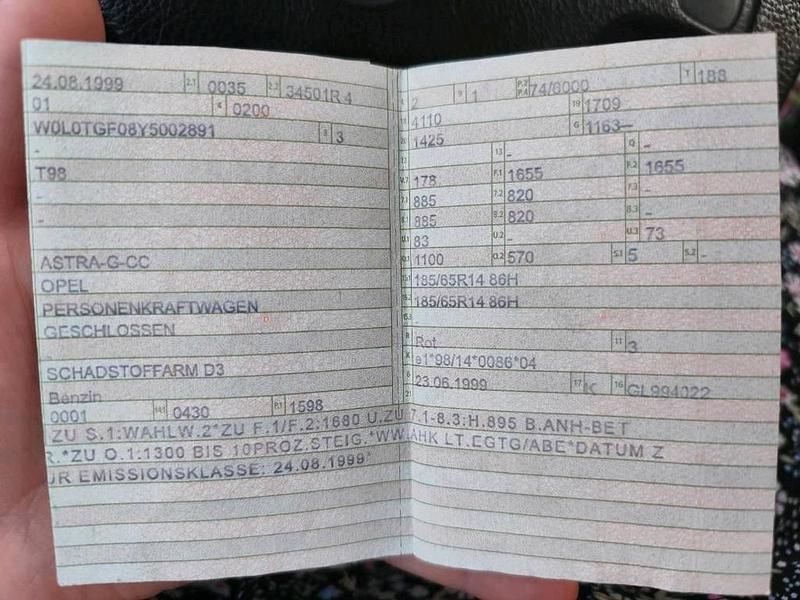 24.08.1999 2.1 0035 2.2 34501R 4
01 4 0200
W0L0TGF08Y5002891 3 3
-
T98
-
-
ASTRA-G-CC
OPEL
PERSONENKRAFTWAGEN
GESCHLOSSEN
SCHADSTOFFARM D3
Benzin
0001 14.1 0430 P.1 1598
2 9 1 P.2 P.4 74/6000 T 188
4110 19 1709
1425 G 1163-
13 - Q -
178 F.1 1655 F.2 1655
885 7.2 820 7.3 -
885 8.2 820 8.3 -
83 U.2 - U.3 73
1100 O.2 570 S.1 5 S.2 -
185/65R14 86H
185/65R14 86H
R Rot 11 3
K e1*98/14*0086*04
6 23.06.1999 17 K 16 GL994022
ZU S.1:WAHLW.2*ZU F.1/F.2:1680 U.ZU 7.1-8.3:H.895 B.ANH-BET
R.*ZU O.1:1300 BIS 10PROZ.STEIG.*WW.AHK LT.EGTG/ABE*DATUM Z
UR EMISSIONSKLASSE: 24.08.1999*